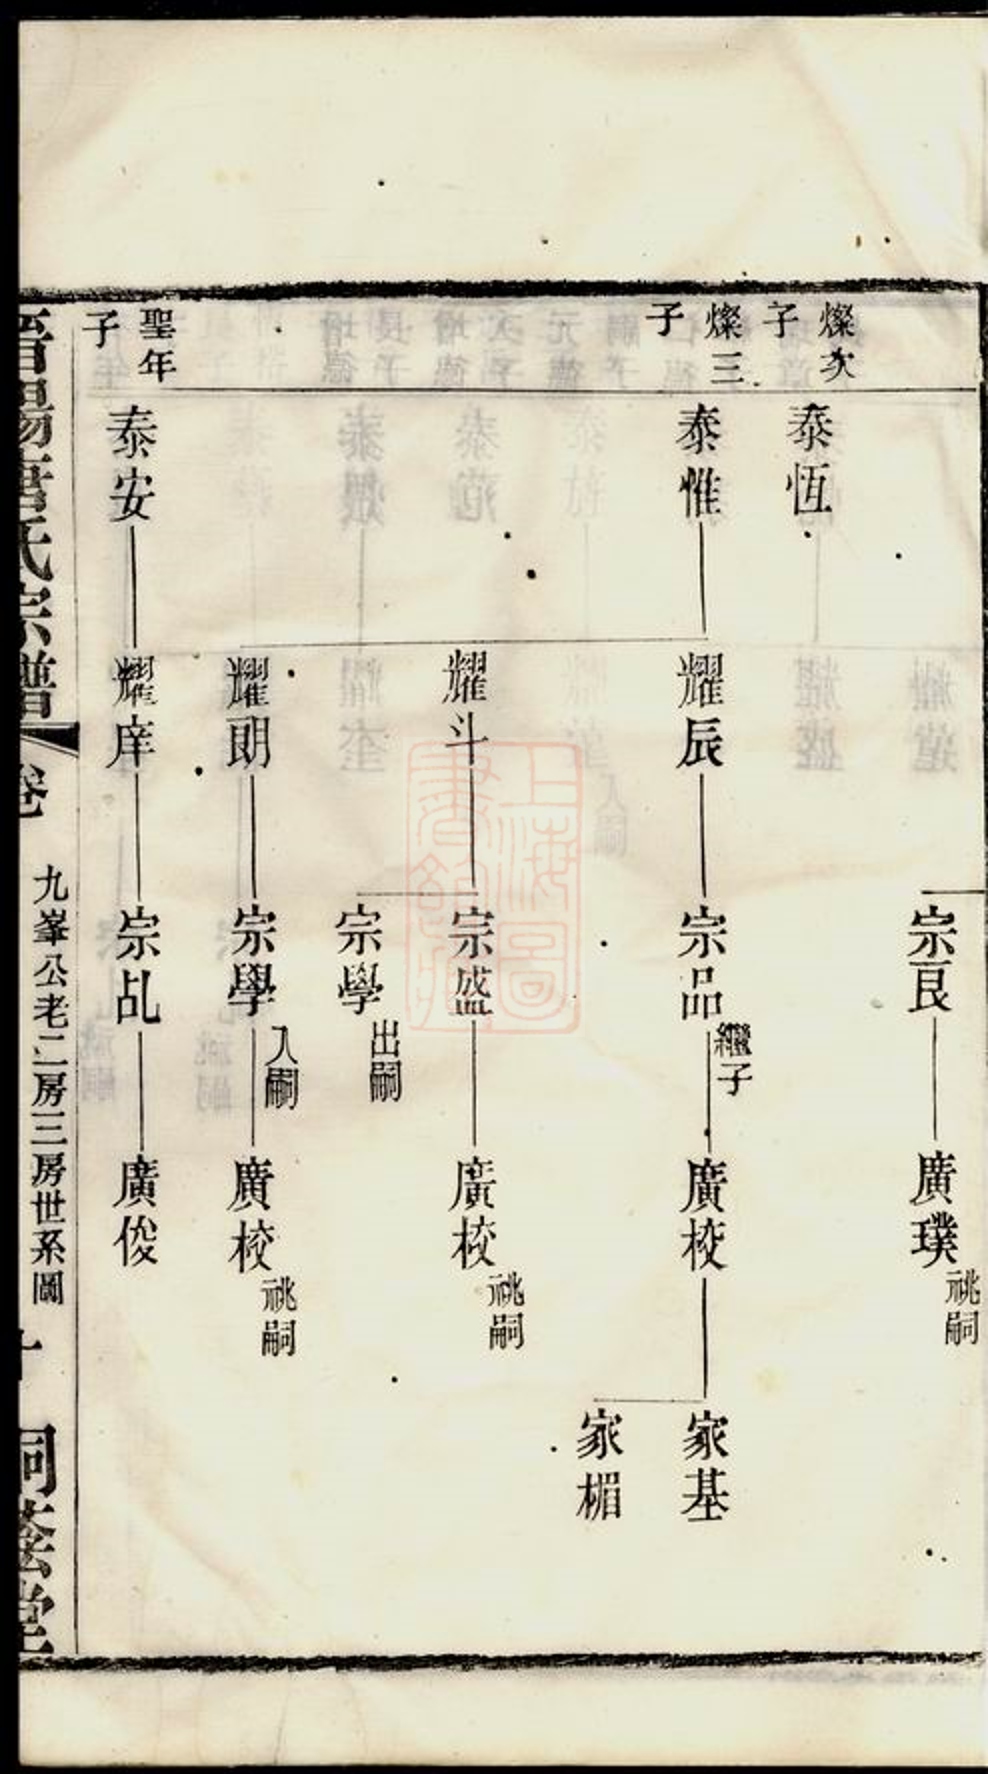 宗艮
廣璞
祧嗣
燦次子
泰恆
燦三子
泰惟
耀辰
宗品
繼子
廣校
家基
家楣
耀斗
宗盛
廣校
祧嗣
宗學
出嗣
耀朗
宗學
入嗣
廣校
祧嗣
聖年子
泰安
耀庠
宗乩
廣俊
氏宗譜
卷
九峯公老二房三房世系圖
上海圖書館藏